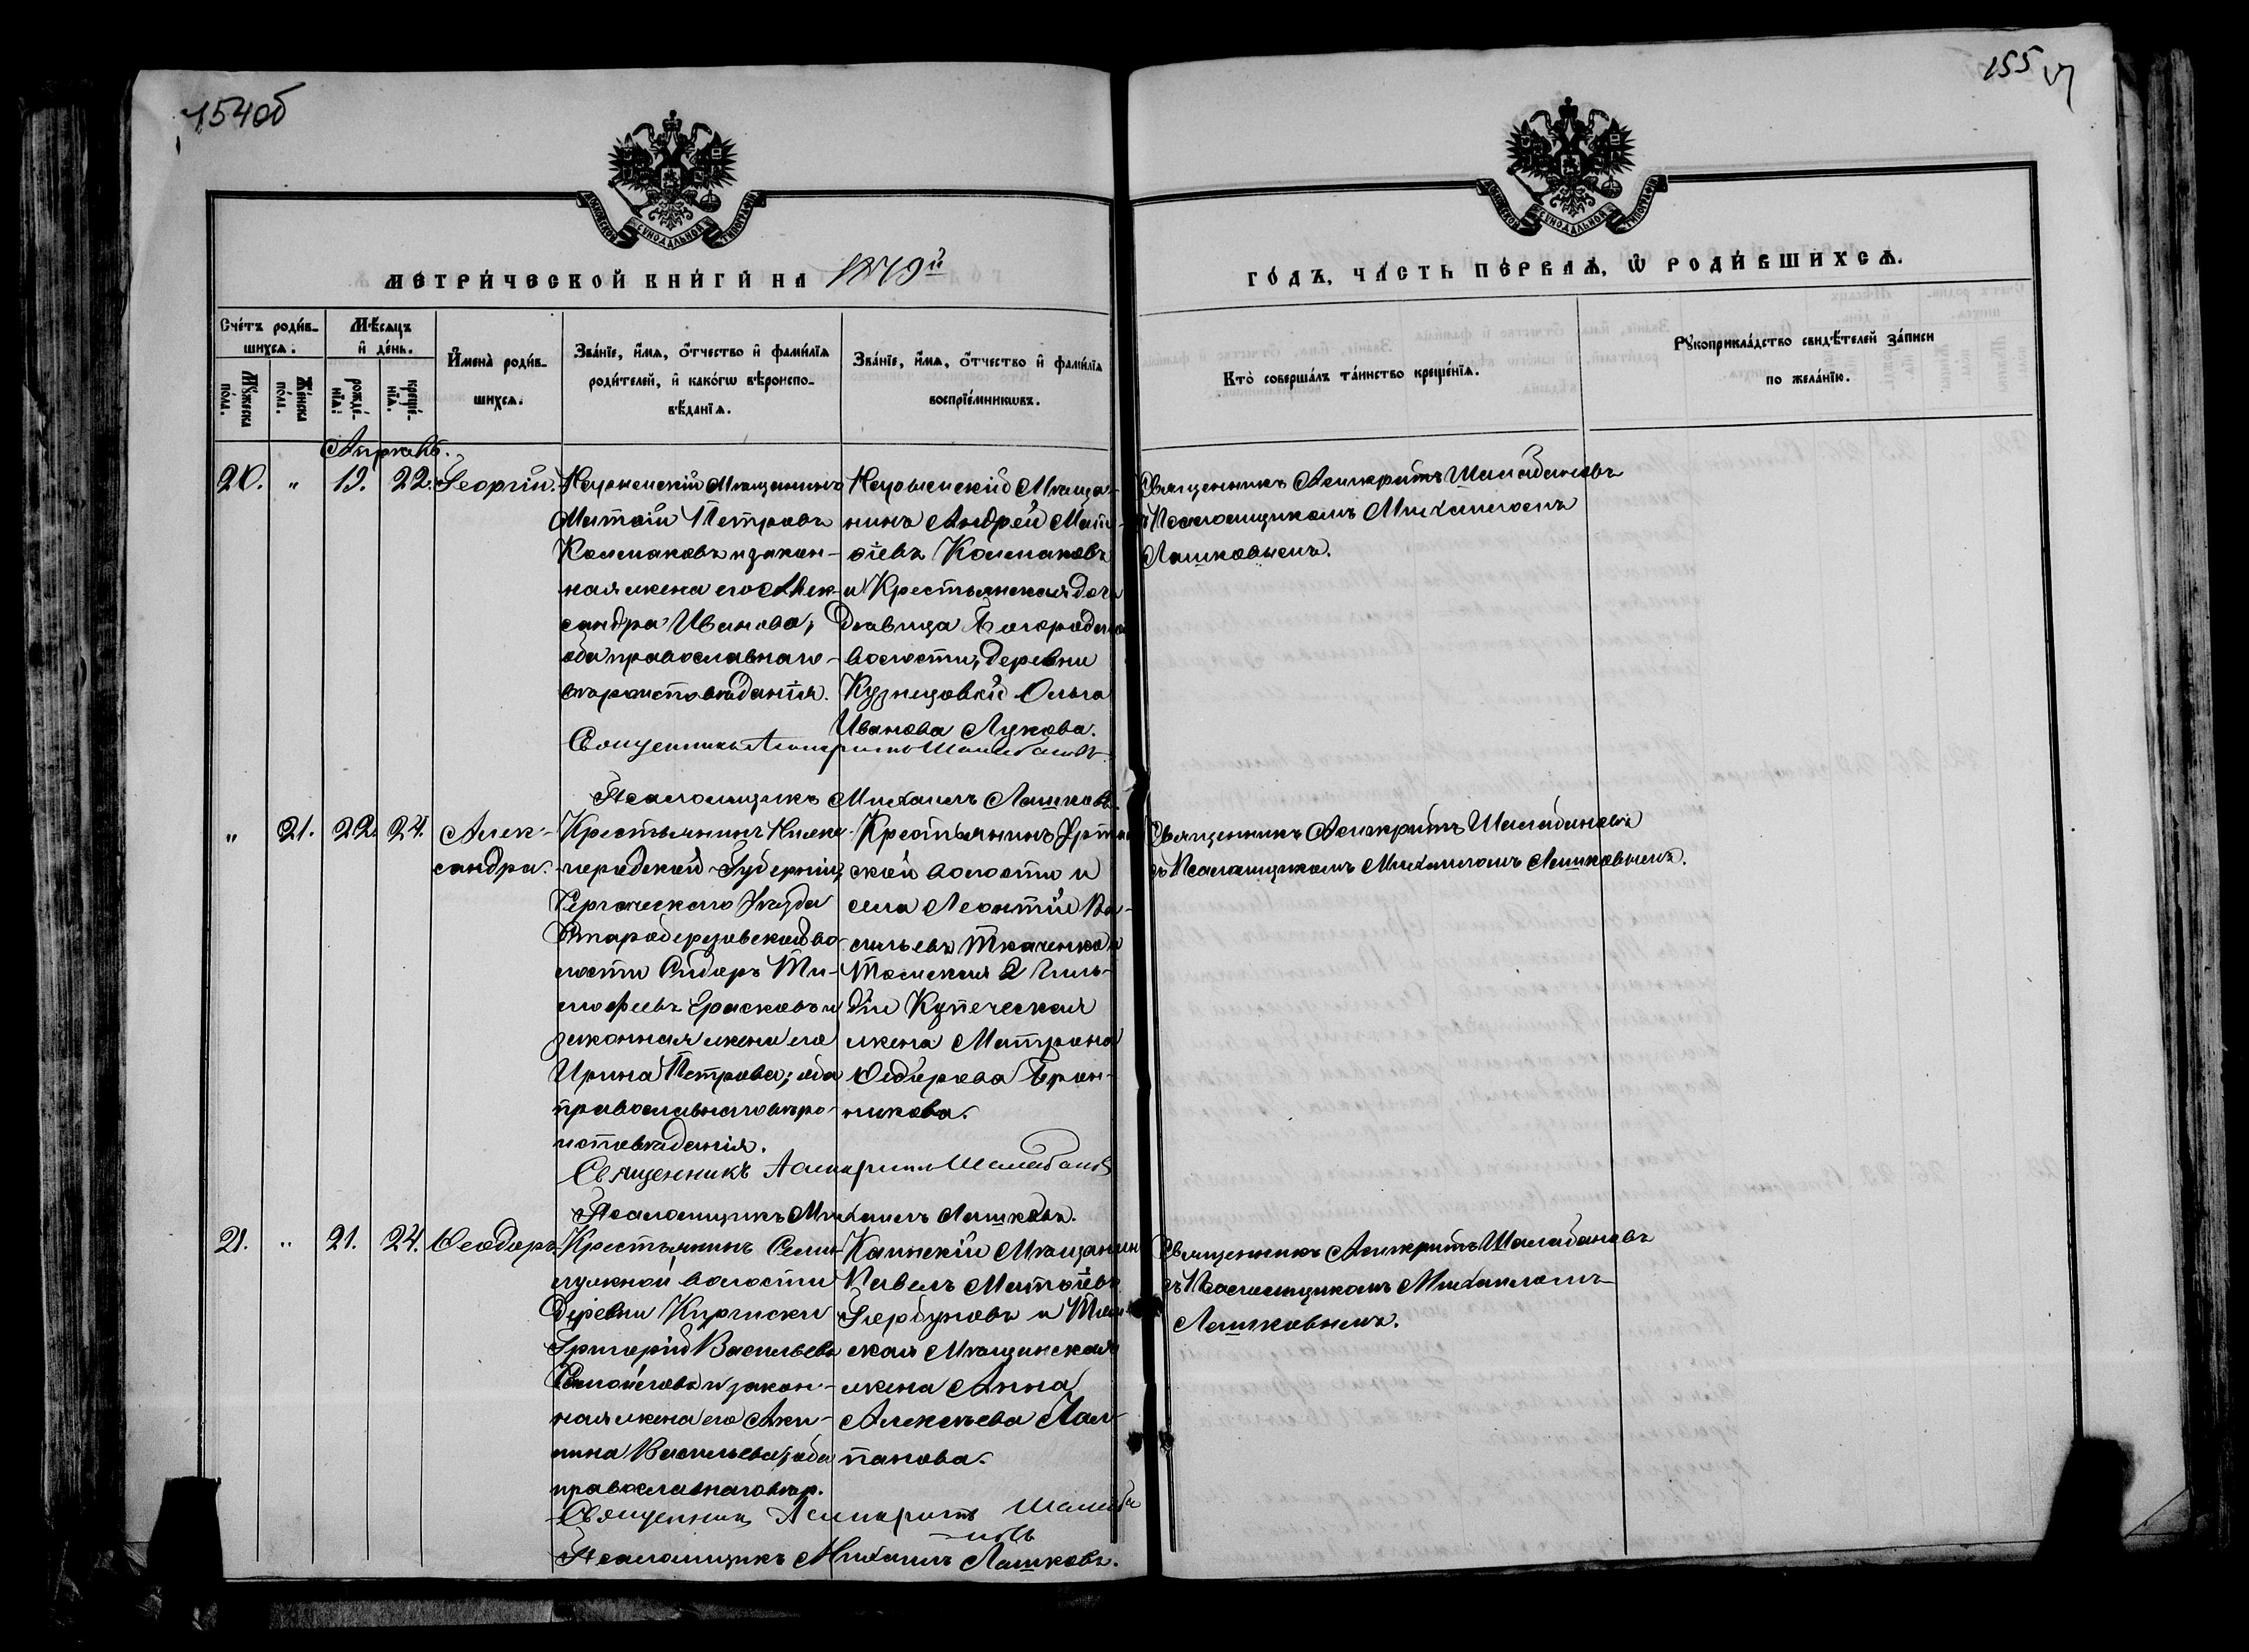 154об
155
МОСКОВСКОЙ СѴНОДАЛЬНОЙ ТИПОГРАФІИ
МОСКОВСКОЙ СѴНОДАЛЬНОЙ ТИПОГРАФІИ
МЕТРИ́ЧЕСКОЙ КНИ́ГИ НА 1879й
ГО́ДЪ, ЧА́СТЬ ПЕ́РВАЯ, Ѡ РОДИ́ВШИХСЯ.
Сче́тъ роди́в-
шихся.
Му́жеска
по́ла.
Же́нска
по́ла.
Мѣ́сяцъ
и де́нь.
рожде́-
нїя.
креще́-
нїя.
Имена̀ роди́в-
шихся.
Зва́нїе, и́мя, о́тчество и фами́лїя
роди́телей, и како́гѡ вѣроиспо-
вѣ́данїя.
Зва́нїе, и́мя, о́тчество и фами́лїя
воспрїе́мникѡвъ.
Кто̀ соверша́лъ та́инство креще́нїя.
Рꙋкоприкла́дство свидѣ́телей за́писи
по жела́нїю.
Апрѣль.
20. " 19. 22. Георгій.
Нарымскій Мѣщанинъ
Матѳій Петровъ
Колмаковъ и закон-
ная жена его Алек-
сандра Иванова;
оба православнаго
вѣроисповѣданія.
Нарымскій Мѣща-
нинъ Андрей Мат-
ѳіевъ Колмаковъ
и Крестьянская дочь
Дѣвица Богородской
волости, деревни
Кузнецовки Ольга
Иванова Лукова.
Священникъ Асигкритъ Шалабановъ
съ Псаломщикомъ Михаиломъ
Лашковымъ.
Священникъ Асигкритъ Шалабановъ
Псаломщикъ Михаилъ Лашковъ.
" 21. 22. 24. Алек-
сандра.
Крестьянинъ Ниже-
городской Губерніи,
Сергачскаго Уѣзда
Староберезовской во-
лости Сидоръ Ти-
моѳеевъ Ерасковъ и
законная жена его
Ирина Петрова; оба
православнаго вѣро-
исповѣданія.
Крестьянинъ Уртам-
ской волости и
села Леонтій Ва-
сильевъ Ткаченко и
Томская 2 Гиль-
діи Купеческая
жена Матрона
Ѳедорова Брон-
никова.
Священникъ Асигкритъ Шалабановъ
съ Псаломщикомъ Михаиломъ Лашковымъ.
Священникъ Асигкритъ Шалабановъ
Псаломщикъ Михаилъ Лашковъ.
21. " 21. 24. Ѳеодоръ
Крестьянинъ Семи-
лужной волости
Деревни Киргиски
Григорій Васильевъ
Самойловъ и закон-
ная жена его Аки-
лина Васильева; оба
православнаго вѣр.
Каинскій Мѣщанинъ
Павелъ Матѳіевъ
Гербуновъ и Том-
ская Мѣщанская
жена Анна
Алексѣева Лап-
панова.
Священникъ Асигкритъ Шалабановъ
съ Псаломщикомъ Михаиломъ
Лашковымъ.
Священникъ Асигкритъ Шалаба-
новъ
Псаломщикъ Михаилъ Лашковъ.